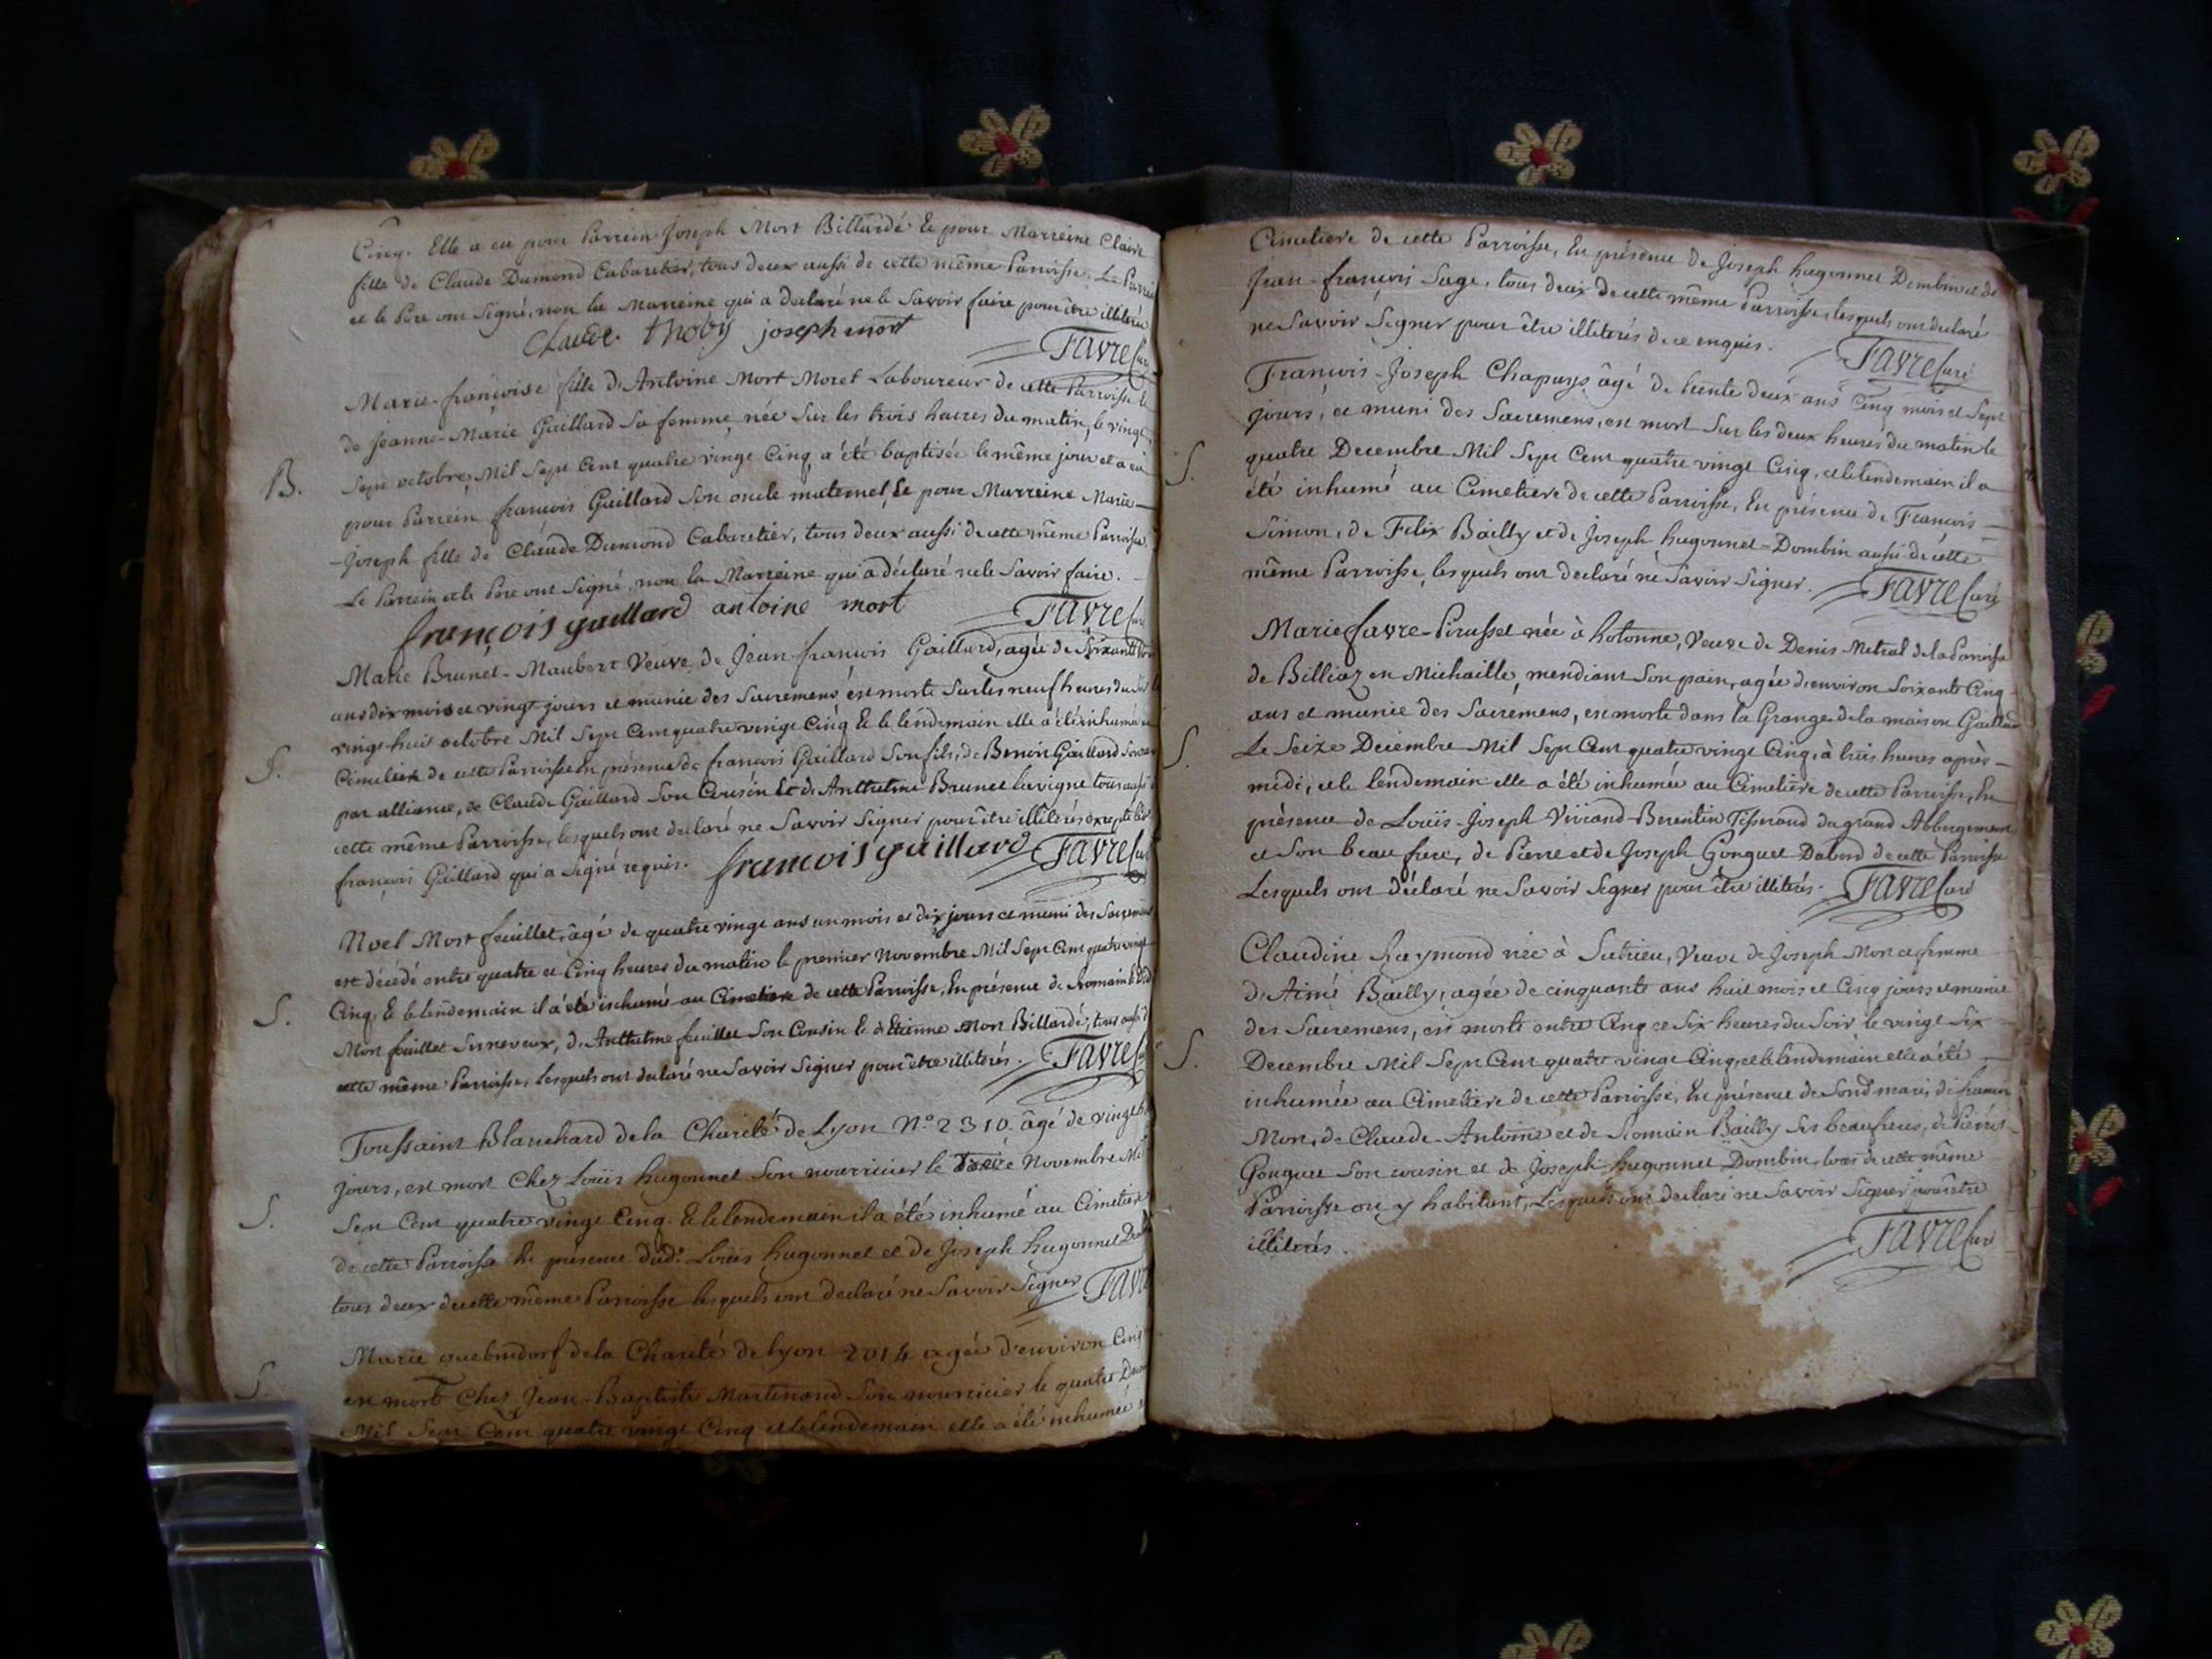 Cinq. Elle a eu pour Parrein Joseph Mort Billardé Et pour Marreine Claire
fille de Claude Dumond Cabaretier, tous deux aussi de cette même Parroisse. Le Parrein
et le Pere ont Signé, non la Marreine qui a declaré ne le Savoir faire pour être illiterée
Claude thoby joseph mort
Favre Curé
Marie-françoise fille d'Antoine Mort Moret Laboureur de cette Parroisse et
de Jeanne-Marie Gaillard Sa femme, née Sur les trois heures du matin, le vingt
B. Sept octobre Mil Sept Cent quatre vingt Cinq, a été baptisée le même jour et a eu
pour Parrein françois Gaillard Son oncle maternel, Et pour Marreine Marie-
-Joseph fille de Claude Dumond Cabaretier, tous deux aussi de cette même Parroisse.
Le Parrein et le Pere ont Signé, non la Marreine qui a déclaré ne le Savoir faire.
françois gaillard antoine mort Favre Curé
Marie Brunet-Maubert Veuve de Jean-françois Gaillard, agée de Soixante
ans dix mois et vingt jours et munie des Sacremens est morte Sur les neuf heures du
vingt-huit octobre Mil Sept Cent quatre vingt Cinq Et le lendemain elle a été inhumée au
S. Cimetiere de cette Parroisse En présence de françois Gaillard Son fils, de Benoit Gaillard Son
par alliance, de Claude Gaillard Son Cousin Et d'Anthelme Brunet lavigne tous aussi de
cette même Parroisse, lesquels ont declaré ne Savoir Signer pour être illiterés excepté
françois Gaillard qui a Signé requis. francois gaillard Favre Curé
Noel Mort feuillet, âgé de quatre vingt ans un mois et dix jours et muni des Sacremens
est décédé entre quatre et Cinq heures du matin le premier Novembre Mil Sept Cent quatre vingt
S. Cinq, Et le lendemain il a été inhumé au Cimetiere de cette Parroisse, En présence de Romain
Mort feuillet Ses neveux, d'Anthelme feuillet Son Cousin Et d'Etienne Mort Billardé; tous aussi de
cette même Parroisse, Lesquels ont declaré ne Savoir Signer pour être illiterés. Favre
Toussaint Blanchard de la Charité de Lyon N.° 2310. âgé de vingt
jours, est mort Chez Loüis hugonnet Son nourricier le Treize Novembre Mil
S. Sept Cent quatre vingt Cinq. Et le lendemain il a été inhumé au Cimetiere
de cette Parroisse En présence dud.t Loüis hugonnet et de Joseph hugonnet
tous deux de cette même Parroisse lesquels ont declaré ne Savoir Signer Favre
Marie de la Charité de Lyon 2014 agée d'environ Cinq
S. est mort Chez Jean-Baptiste Martinand Son nourricier le quatre
Mil Sept Cent quatre vingt Cinq et le lendemain elle a été inhumée au
Cimetiere de cette Parroisse, En présence de Joseph hugonnet Dombin et de
Jean-françois Suge, tous deux de cette même Parroisse, lesquels ont declaré
ne Savoir Signer pour être illiterés de ce enquis. Favre Curé
François-Joseph Chapuys âgé de trente deux ans Cinq mois et Sept
jours, et muni des Sacremens, est mort Sur les deux heures du matin le
S. quatre Decembre Mil Sept Cent quatre vingt Cinq, et le lendemain il a
été inhumé au Cimetiere de cette Parroisse, En présence de François
Simon, de Felix Bailly et de Joseph hugonnet-Dombin aussi de cette
même Parroisse, lesquels ont declaré ne Savoir Signer. Favre Curé
Marie favre-Pirusset née à hotonne, Veuve de Denis Metral de la Parroisse
de Billiaz en Michaille, mendiant Son pain, agée d'environ Soixante Cinq
ans et munie des Sacremens, est morte dans la Grange de la maison Gaillard
S. Le Seize Decembre Mil Sept Cent quatre vingt Cinq, à trois heures après-
midi, et le lendemain elle a été inhumée au Cimetiere de cette Parroisse, En
présence de Loüis-Joseph Viviand-Berentin Tisserand du grand Abbergement
et Son beau frere, de Pierre et de Joseph Gonguet Dabord de cette Parroisse
Lesquels ont déclaré ne Savoir Signer pour être illiterés. Favre Curé
Claudine Raymond née à Sutrieu, Veuve de Joseph Mort et femme
d'Aimé Bailly, agée de cinquante ans huit mois et Cinq jours et munie
des Sacremens, est morte entre Cinq et Six heures du Soir le vingt Six
S. Decembre Mil Sept Cent quatre vingt Cinq, et le lendemain elle a été
inhumée au Cimetiere de cette Parroisse, En présence de Sond. mari, de
Mort, de Claude-Antoine et de Romain Bailly Ses beaufreres, de Pierre
Gonguet Son cousin et de Joseph hugonnet Dombin, tous de cette même
Parroisse ou y habitant, Lesquels ont declaré ne Savoir Signer pour être
illiterés. Favre Curé